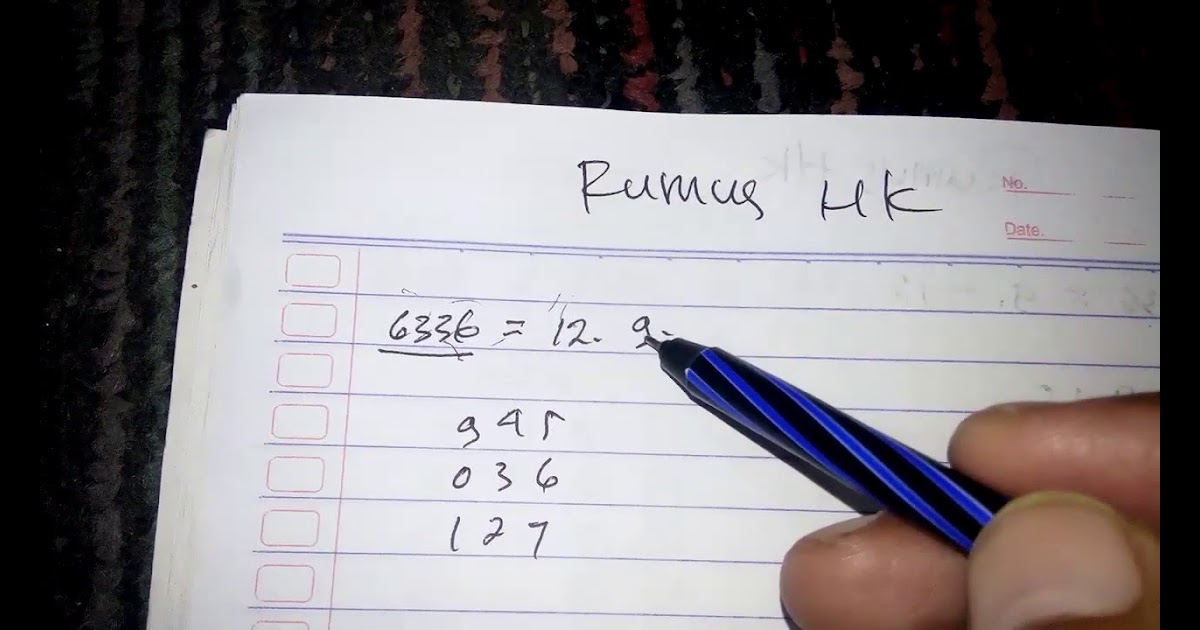 Rumus HK
No.
Date.
6336 = 12. 9.
945
036
127